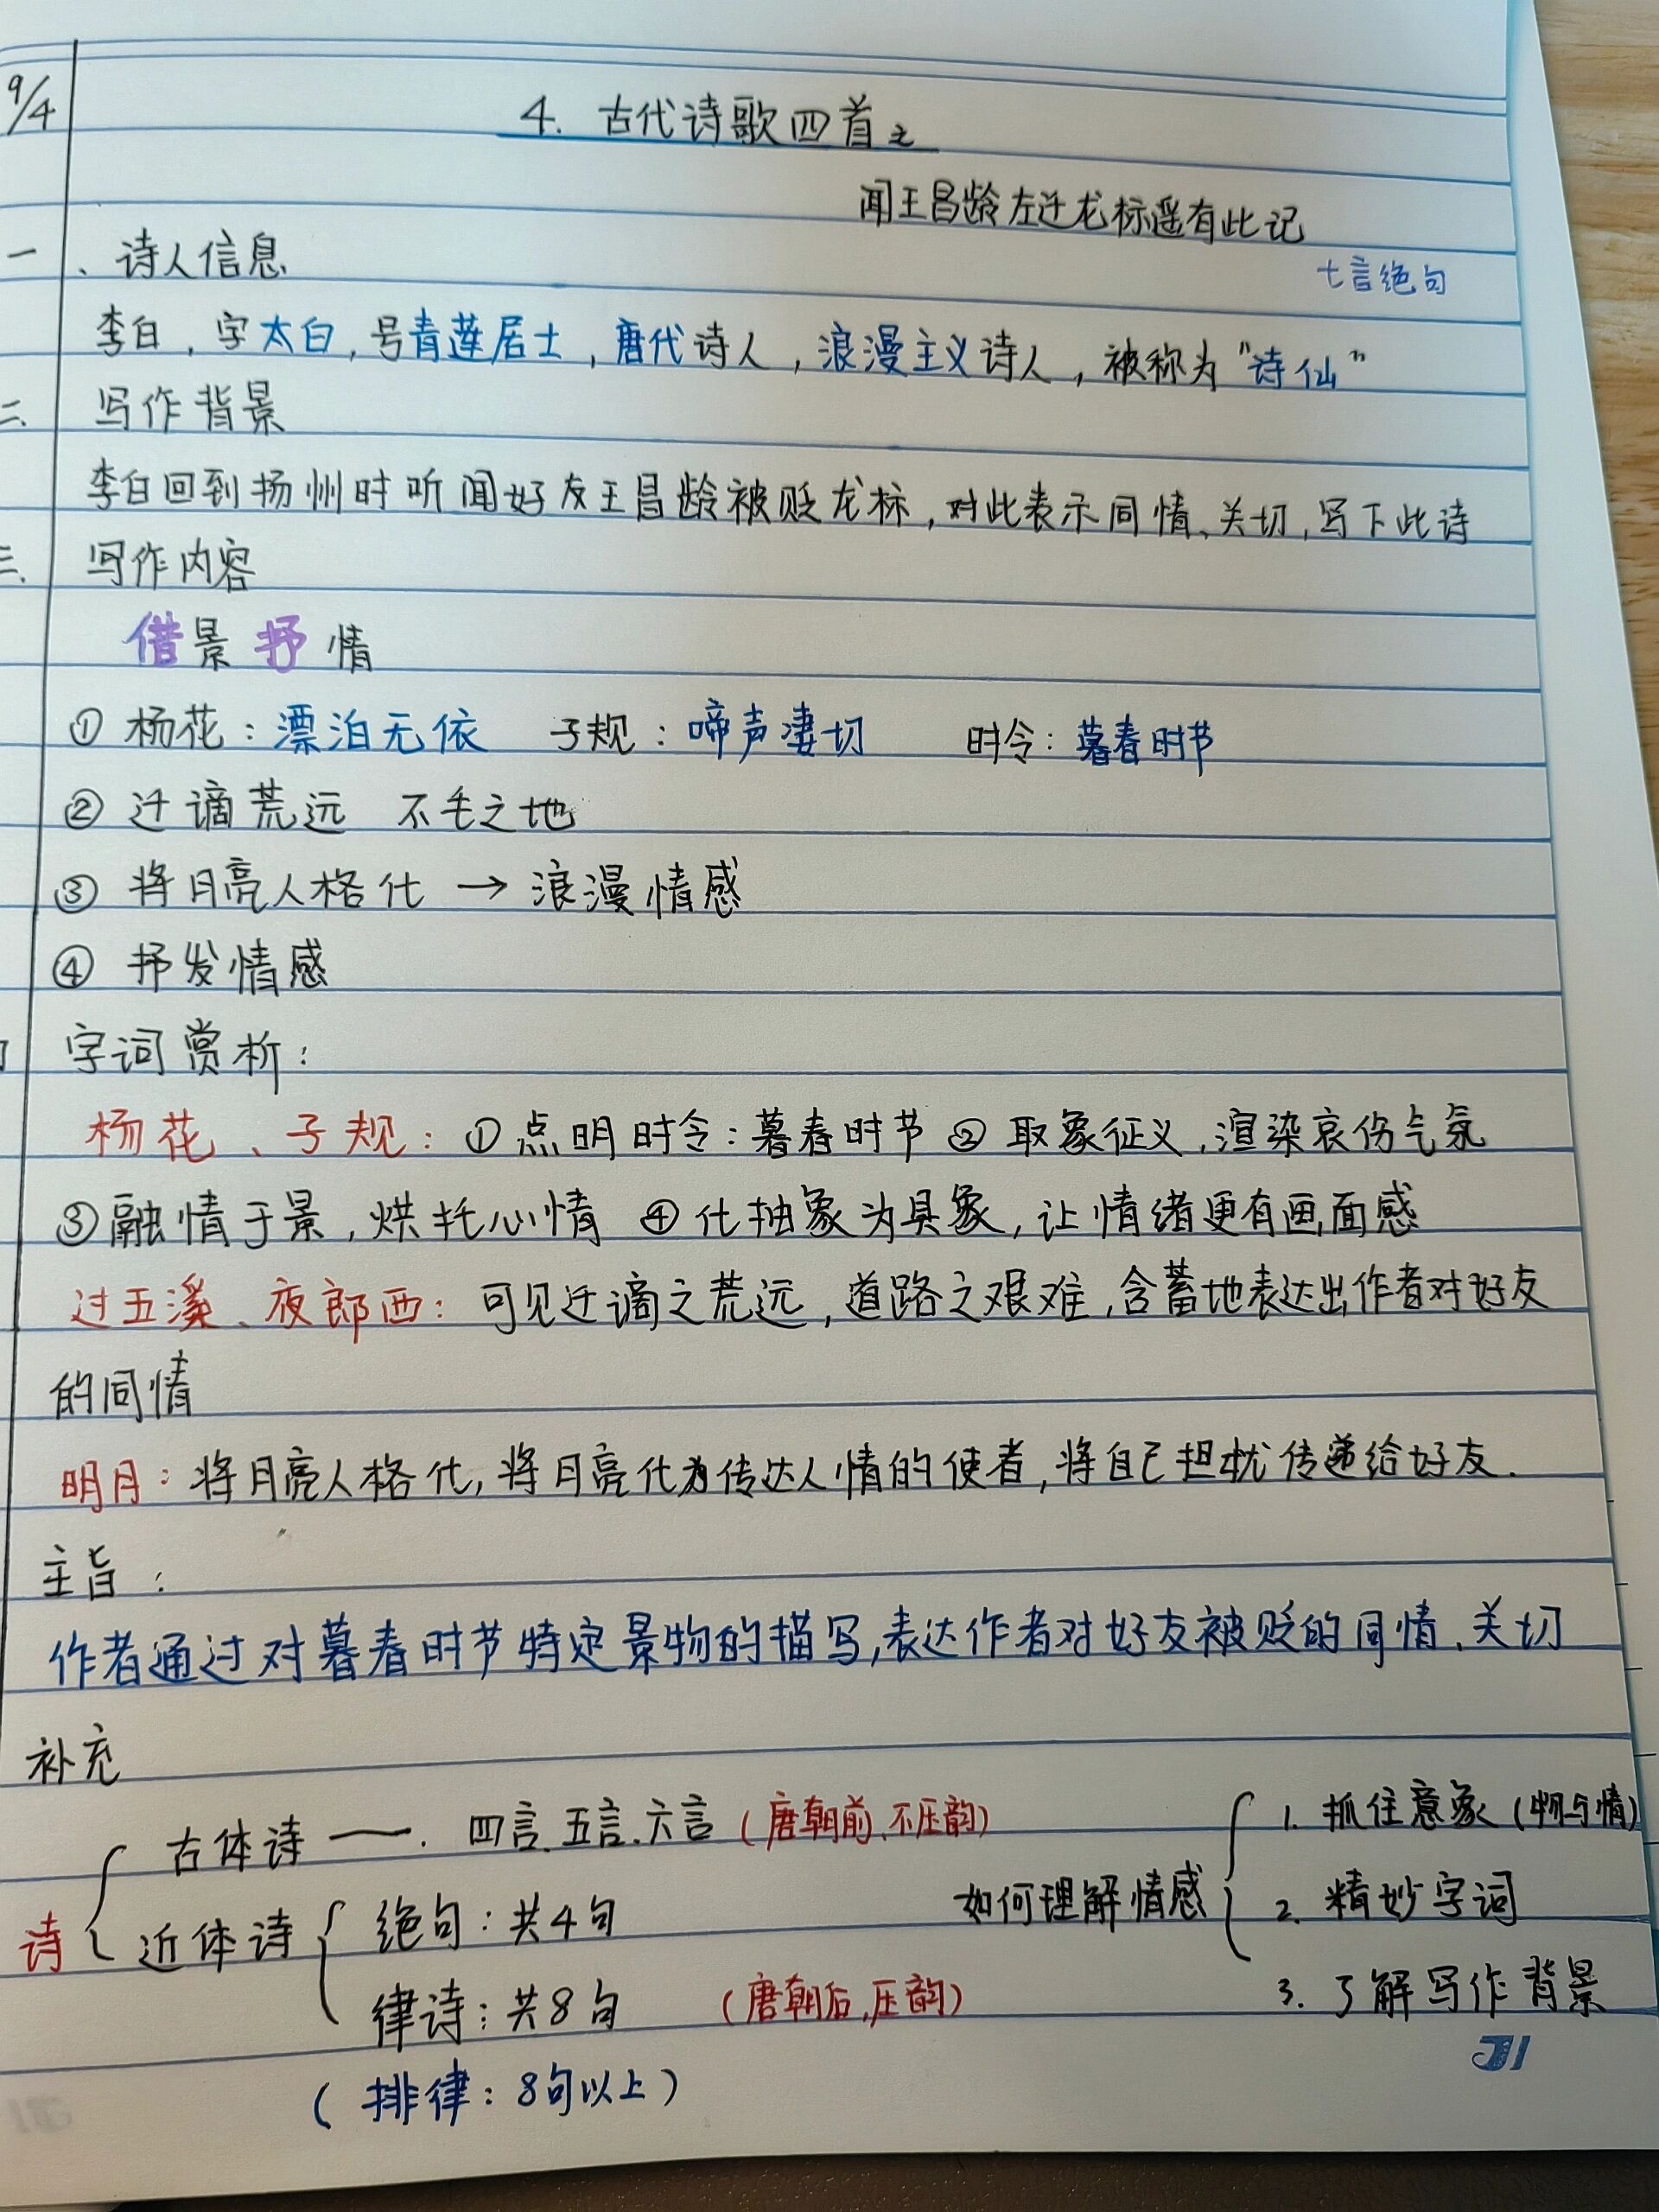 9/4
4. 古代诗歌四首之
闻王昌龄左迁龙标遥有此记
七言绝句
一、诗人信息
李白，字太白，号青莲居士，唐代诗人，浪漫主义诗人，被称为“诗仙”
二、写作背景
李白回到扬州时听闻好友王昌龄被贬龙标，对此表示同情、关切，写下此诗
三、写作内容
借景抒情
① 杨花：漂泊无依 子规：啼声凄切 时令：暮春时节
② 迁谪荒远 不毛之地
③ 将月亮人格化 → 浪漫情感
④ 抒发情感
字词赏析：
杨花、子规：①点明时令：暮春时节 ② 取象征义，渲染哀伤气氛
③融情于景，烘托心情 ④化抽象为具象，让情绪更有画面感
过五溪、夜郎西：可见迁谪之荒远，道路之艰难，含蓄地表达出作者对好友
的同情
明月：将月亮人格化，将月亮化为传达人情的使者，将自己担忧传递给好友.
主旨：
作者通过对暮春时节特定景物的描写，表达作者对好友被贬的同情、关切
补充
古体诗 —. 四言、五言、六言（唐朝前、不压韵）
诗 近体诗 绝句：共4句
律诗：共8句 （唐朝后，压韵）
（排律：8句以上）
如何理解情感
1. 抓住意象（物与情）
2. 精妙字词
3. 了解写作背景
31